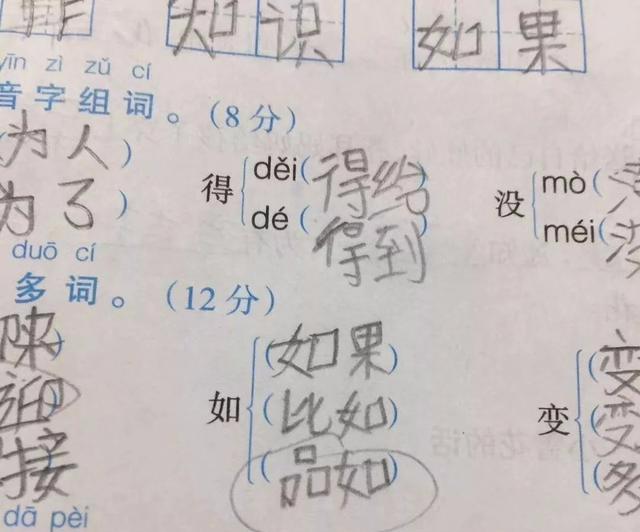 知识 如果
yīn zì zǔ cí
音字组词。(8分)
(为人)
为了)
得 děi(得给)
dé(得到)
没 mò(
méi(
duō cí
多词。(12分)
如 (如果)
(比如)
(品如)
变 (变
(变
(多
迎)
接
dā pèi